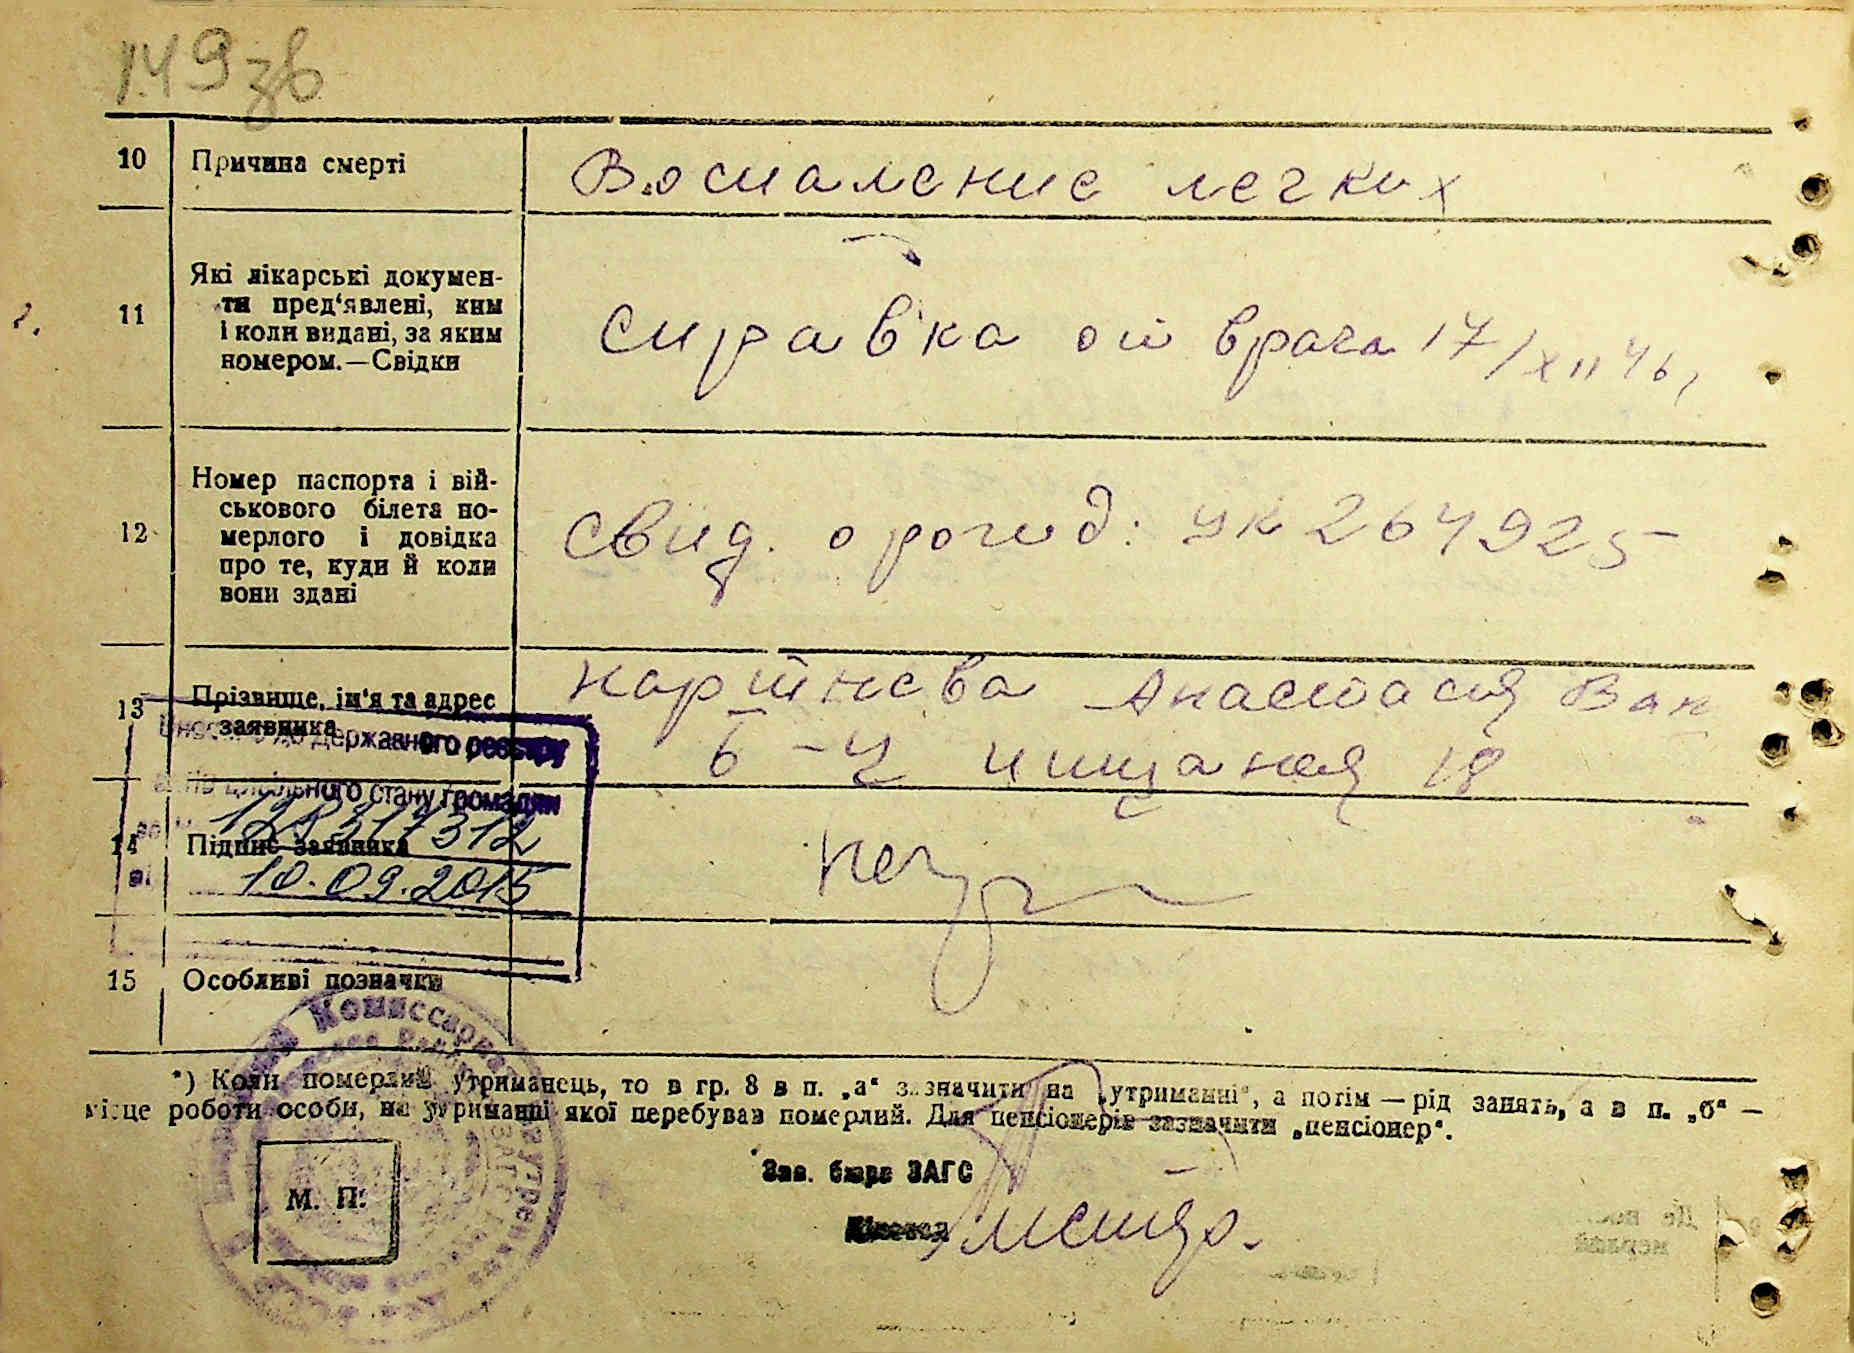 149 зв
10 Причина смерті Воспаление легких
11 Які лікарські докумен-
ти пред'явлені, ким
і коли видані, за яким
номером.—Свідки
справка от врача 17/XII 46,
12 Номер паспорта і вій-
ськового білета по-
мерлого і довідка
про те, куди й коли
вони здані
Свид. о рожд: УК 264925
13 Прізвище, ім'я та адрес
заявника
Анастасия
18
державного реєстру
цивільного стану громадян
128317312
10.09.2015
14 Підпис заявника
15 Особливі позначки
*) Коли померлий утриманець, то в гр. 8 в п. „а“ зазначити „на утриманні“, а потім — рід занять, а в п. „б“ —
місце роботи особи, на утриманні якої перебував померлий. Для пенсіонерів зазначити „пенсіонер“.
Зав. бюро ЗАГС
М. П.